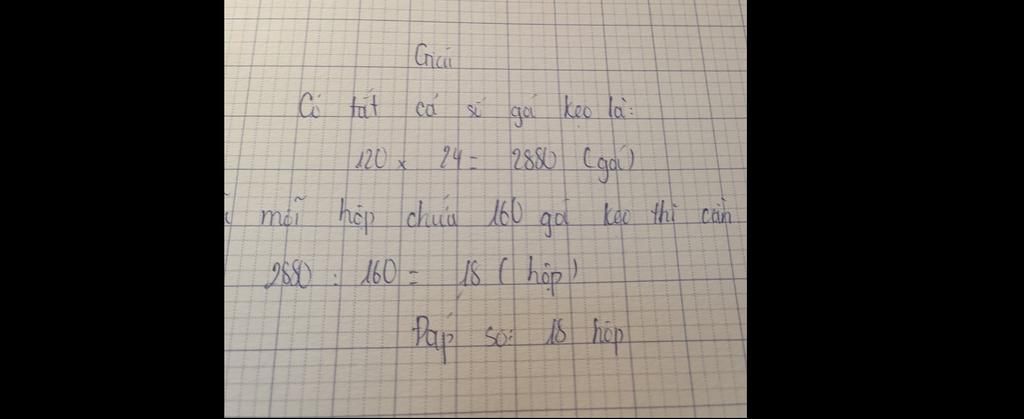 Giải
Có tất cả số gói kẹo là:
120 x 24 = 2880 (gói)
mỗi hộp chứa 160 gói kẹo thì cần
2880 : 160 = 18 (hộp)
Đáp số: 18 hộp